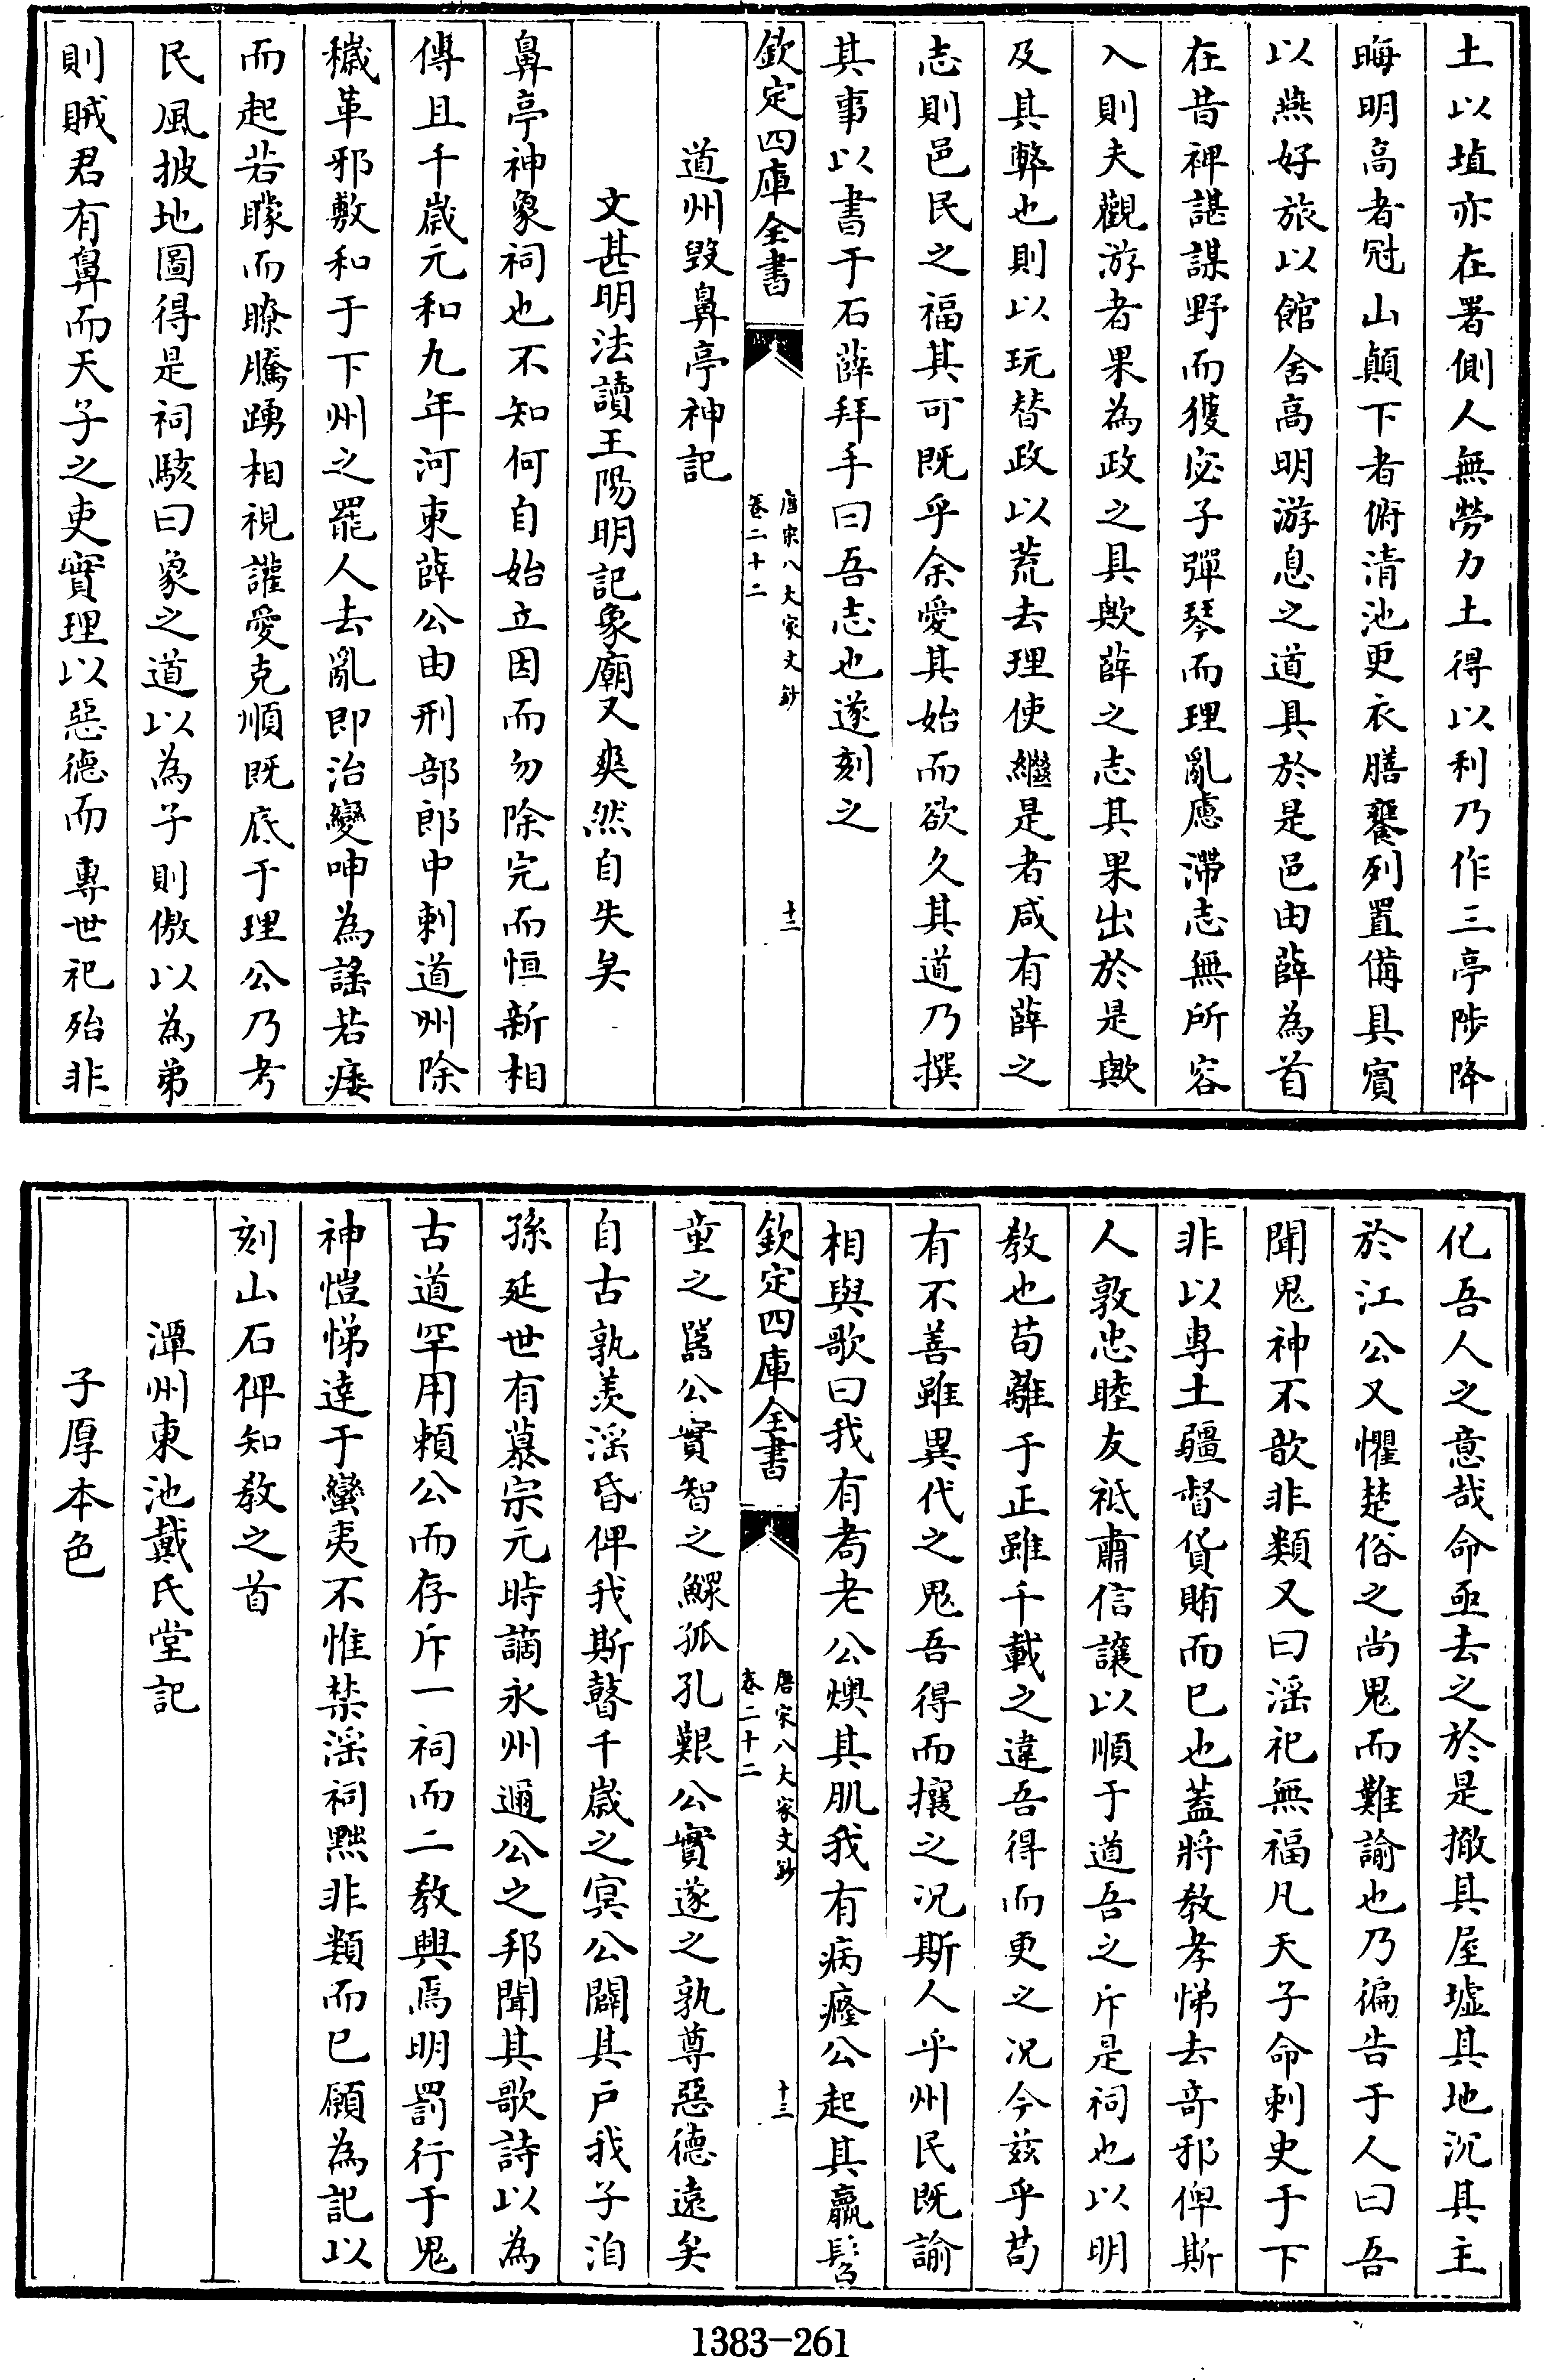 土以埴亦在署側人無勞力土得以利乃作三亭陟降
晦明高者冠山顛下者俯清池更衣膳饔列置備具賓
以燕好旅以館舍高明游息之道具於是邑由薛為首
在昔裨諶謀野而獲宓子彈琴而理亂慮滯志無所容
入則夫觀游者果為政之具歟薛之志其果出於是歟
及其弊也則以玩替政以荒去理使繼是者咸有薛之
志則邑民之福其可既乎余愛其始而欲久其道乃撰
其事以書于石薛拜手曰吾志也遂刻之
欽定四庫全書
唐宋八大家文鈔
卷二十二
十二
道州毀鼻亭神記
文甚明法讀王陽明記象廟又爽然自失矣
鼻亭神象祠也不知何自始立因而勿除完而恒新相
傳且千歲元和九年河東薛公由刑部郎中刺道州除
穢革邪敷和于下州之罷人去亂即治變呻為謠若痿
而起若矇而瞭騰踴相視讙愛克順既底于理公乃考
民風披地圖得是祠駭曰象之道以為子則傲以為弟
則賊君有鼻而天子之吏實理以惡德而專世祀殆非
化吾人之意哉命亟去之於是撤其屋墟其地沉其主
於江公又懼楚俗之尚鬼而難諭也乃徧告于人曰吾
聞鬼神不歆非類又曰淫祀無福凡天子命刺史于下
非以專土疆督貨賄而已也蓋將教孝悌去奇邪俾斯
人敦忠睦友祗肅信讓以順于道吾之斥是祠也以明
教也苟離于正雖千載之違吾得而更之况今兹乎苟
有不善雖異代之鬼吾得而攘之况斯人乎州民既諭
相與歌曰我有耇老公燠其肌我有病癃公起其羸髫
欽定四庫全書
唐宋八大家文鈔
卷二十二
十三
童之嚚公實智之鰥孤孔艱公實遂之孰尊惡德遠矣
自古孰羨淫昏俾我斯瞽千歲之㝠公闢其户我子洎
孫延世有慕宗元時謫永州邇公之邦聞其歌詩以為
古道罕用頼公而存斥一祠而二教興焉明罰行于鬼
神愷悌達于蠻夷不惟禁淫祠黜非類而已願為記以
刻山石俾知教之首
潭州東池戴氏堂記
子厚本色
1383-261